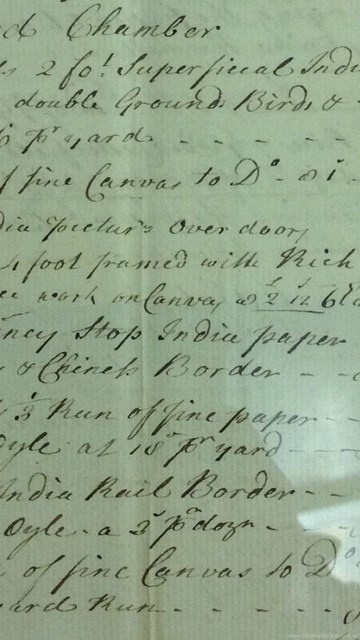 ed Chamber
2 fo.t Superficial Indi
double Ground Birds &
pr yard - - - - -
f fine Canvas to Do - a 1s
dia pictur's over doors
4 foot framed with Rich
work on Canvas a £2 12s 6
ncy Stop India paper
& Chinese Border - - -
1/3 Run of fine paper - -
Dyle at 18d pr yard - -
India Rail Border - - -
Oyle - a 3d pr dozn -
of fine Canvas to Do
yard Run - - - - -